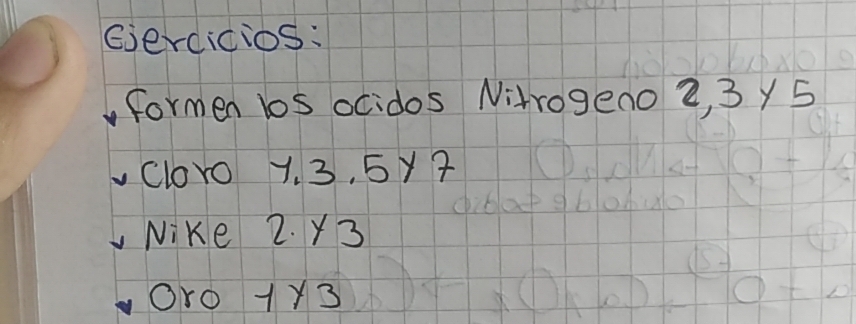 Ejercicios:
formen los ocidos Nitrogeno 2,3 y 5
Cloro 1,3,5 y 7
Nike 2. y 3
Oro 1 y 3